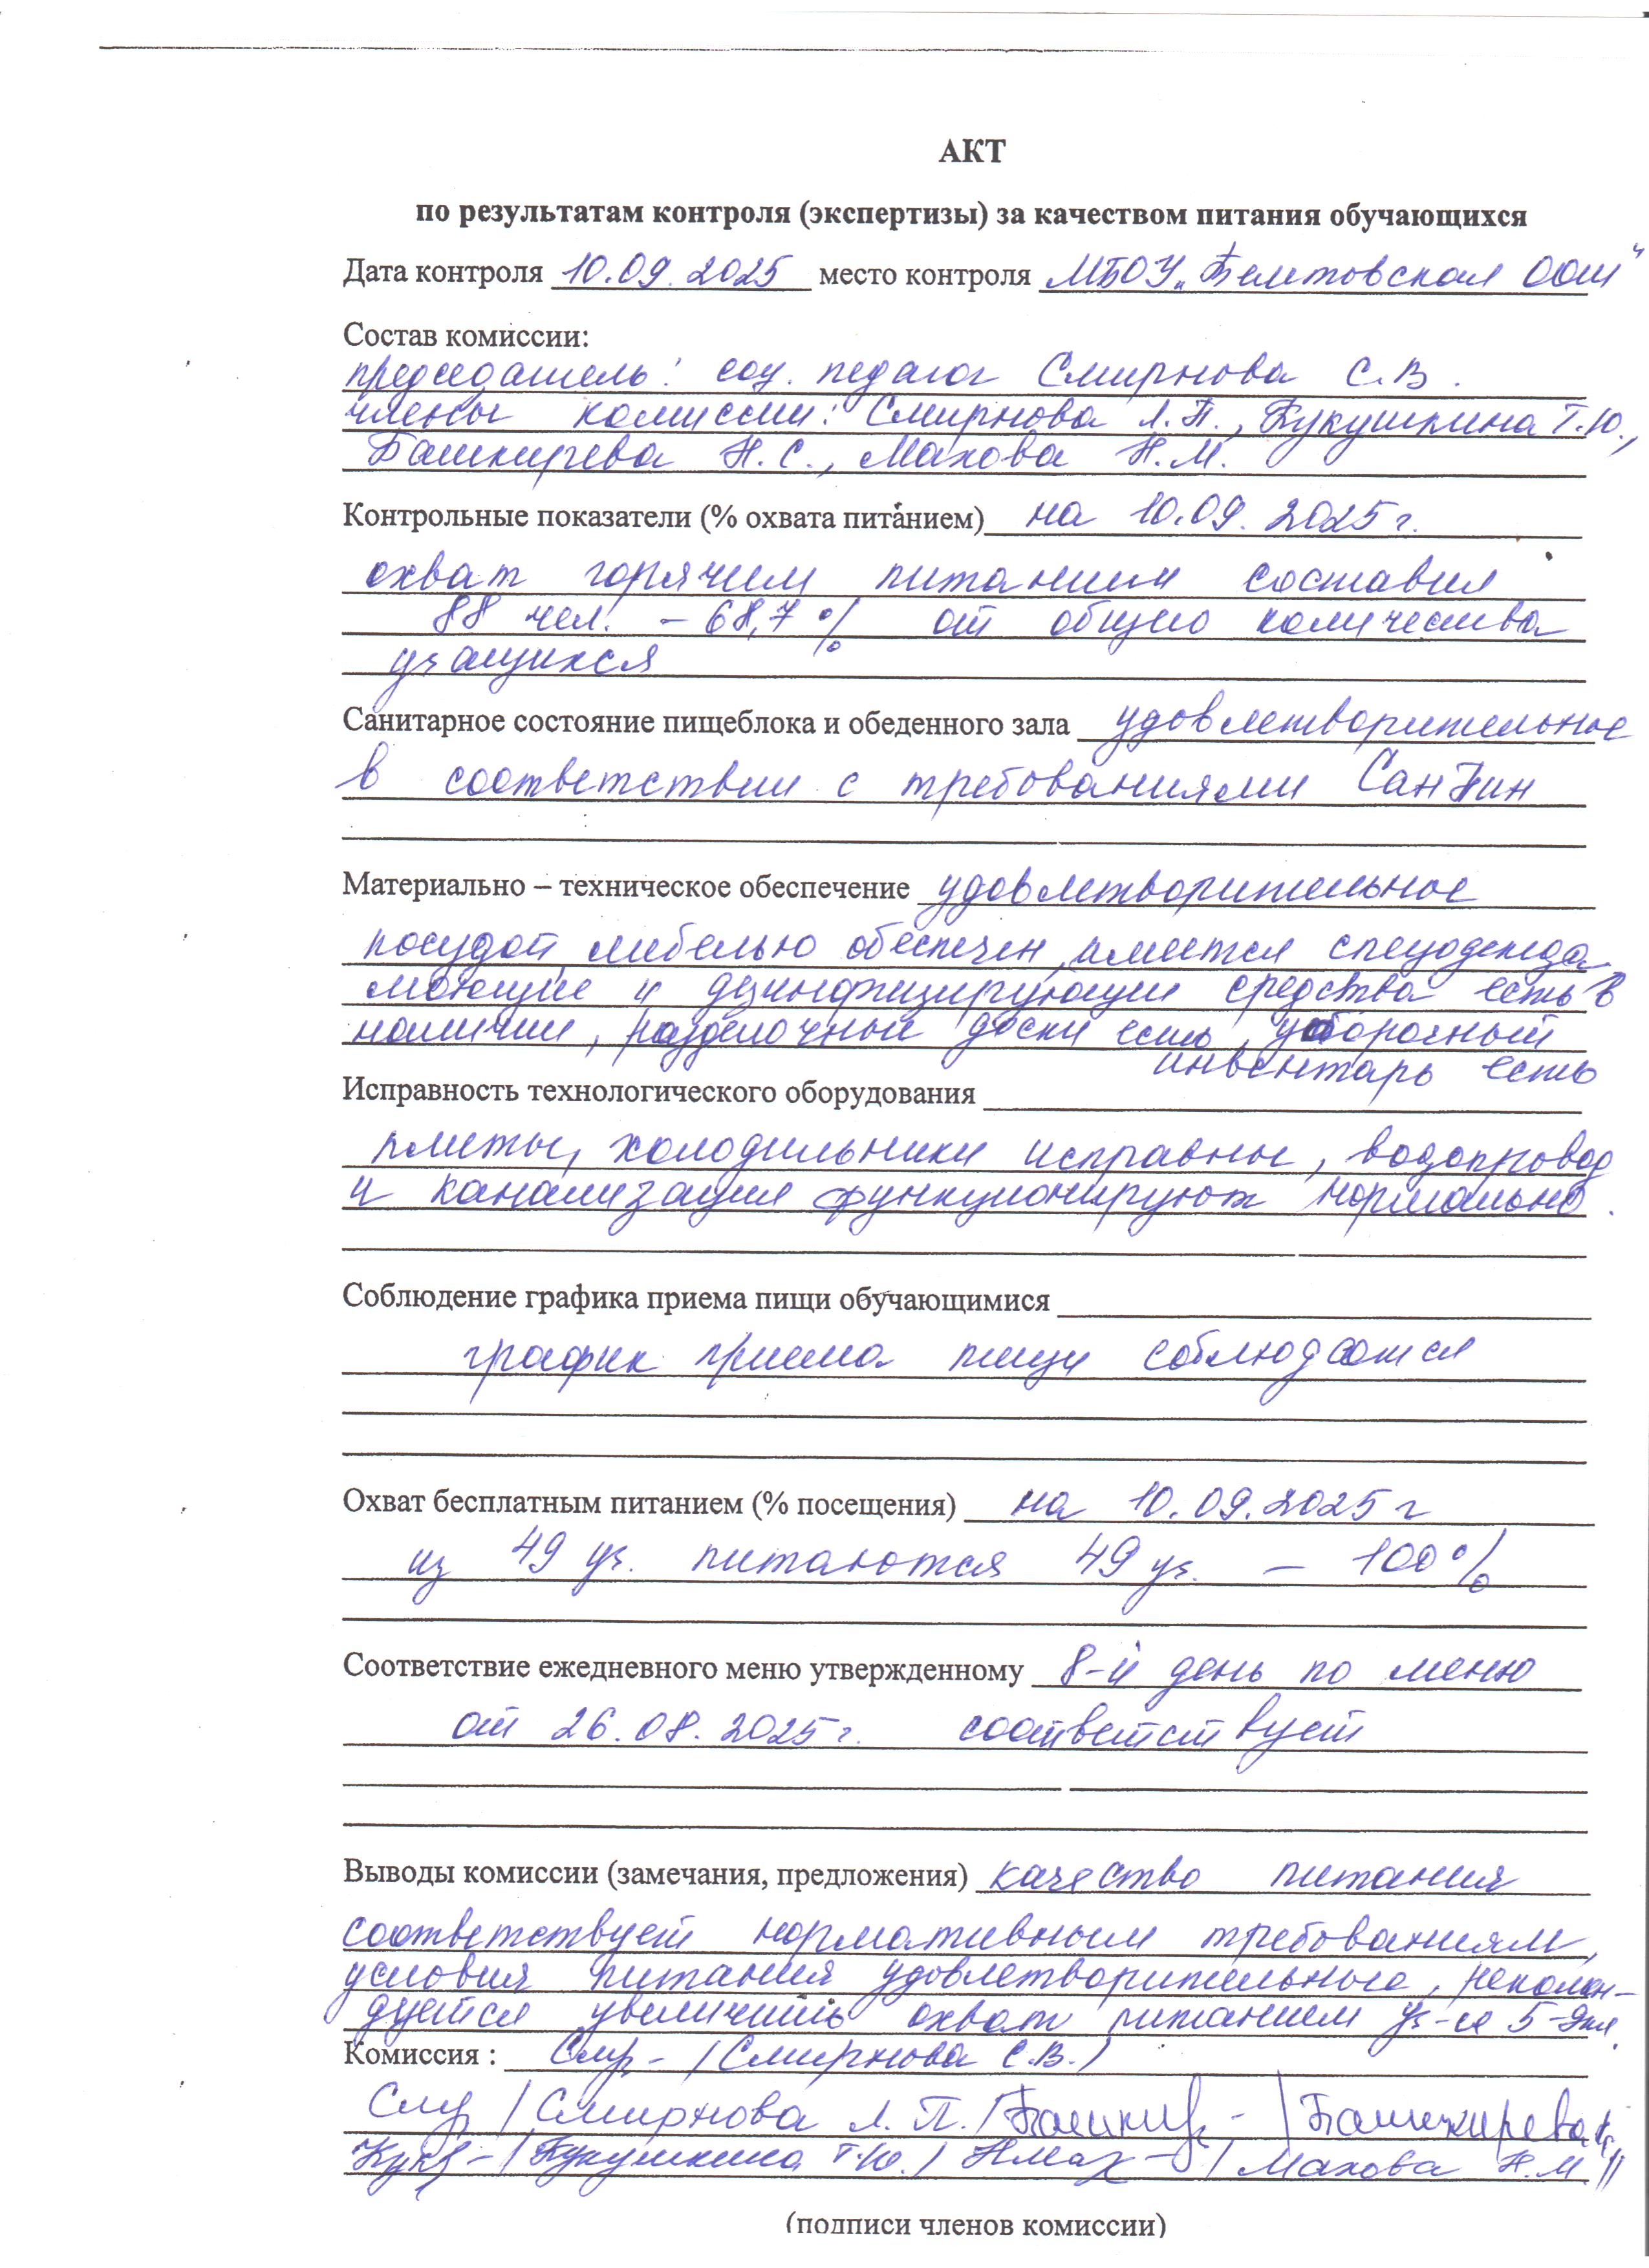 АКТ
по результатам контроля (экспертизы) за качеством питания обучающихся
Дата контроля 10.09.2025 место контроля МБОУ „Белтовская ООШ"
Состав комиссии:
председатель: соц. педагог Смирнова С.В.
члены комиссии: Смирнова Л.П., Кукушкина Т.Ю.,
Башкирева Н.С., Махова Н.М.
Контрольные показатели (% охвата питанием) на 10.09.2025г.
охват горячим питанием составил
88 чел. – 68,7% от общего количества
учащихся
Санитарное состояние пищеблока и обеденного зала удовлетворительное
в соответствии с требованиями СанПин
Материально – техническое обеспечение удовлетворительное
посудой, мебелью обеспечен, имеется спецодежда,
моющие и дезинфицирующие средства есть в
наличии, разделочные доски есть, уборочный
инвентарь есть
Исправность технологического оборудования
плиты, холодильники исправны, водопровод
и канализация функционируют нормально.
Соблюдение графика приема пищи обучающимися
график приема пищи соблюдается
Охват бесплатным питанием (% посещения) на 10.09.2025г
из 49 уч. питаются 49 уч. – 100%
Соответствие ежедневного меню утвержденному 8-й день по меню
от 26.08.2025г. соответствует
Выводы комиссии (замечания, предложения) качество питания
соответствует нормативным требованиям,
условия питания удовлетворительные, рекомен-
дуется увеличить охват питанием уч-ся 5-9кл.
Комиссия : Смр- /Смирнова С.В./
Смр /Смирнова Л.П./ Башкир- /Башкирева
Кук- /Кукушкина Т.Ю./ НМах- /Махова Н.М./
(подписи членов комиссии)